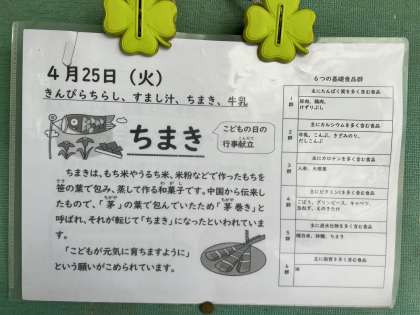 4月25日（火）
きんぴらちらし、すまし汁、ちまき、牛乳
ちまき
こどもの日の
行事献立
ちまきは、もち米やうるち米、米粉などで作ったもちを
笹の葉で包み、蒸して作る和菓子です。中国から伝来し
たもので、「茅」の葉で包んでいたため「茅巻き」と
呼ばれ、それが転じて「ちまき」になったといわれていま
す。
「こどもが元気に育ちますように」
という願いがこめられています。
6つの基礎食品群
主にたんぱく質を多く含む食品
1群
豚肉、鶏肉、
けずりぶし
主にカルシウムを多く含む食品
2群
牛乳、こんぶ、きざみのり、
だしこんぶ
主にカロテンを多く含む食品
3群
主にビタミンCを多く含む食品
4群
ごぼう、グリンピース、キャベツ、
主に炭水化物を多く含む食品
5群
主に脂質を多く含む食品
6群
油